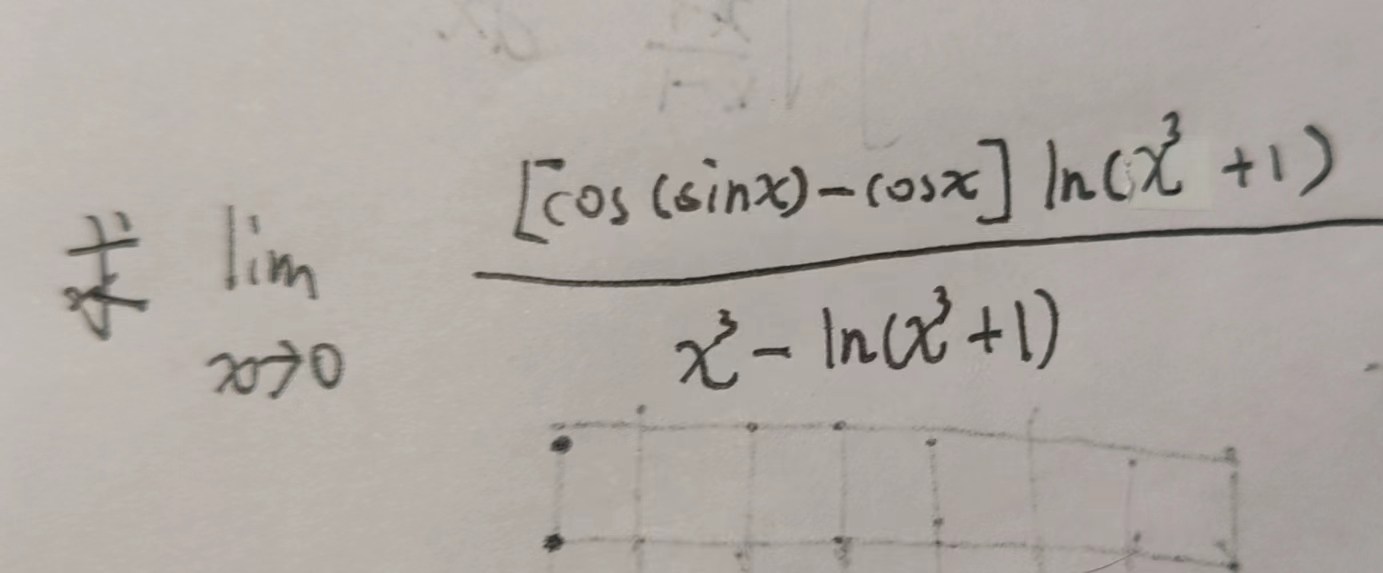 求 lim x→0 [cos(sinx)-cosx] ln(x³+1) / x³ - ln(x³+1)